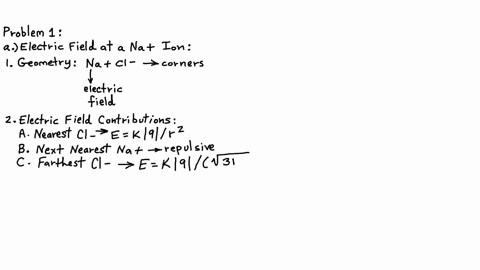 Problem 1:
a.) Electric Field at a Na+ Ion:
1. Geometry: Na + Cl- → corners
↓
electric
field
2. Electric Field Contributions:
A. Nearest Cl- → E = K|q|/r²
B. Next Nearest Na+ → repulsive
C. Farthest Cl- → E = K|q|/(√31